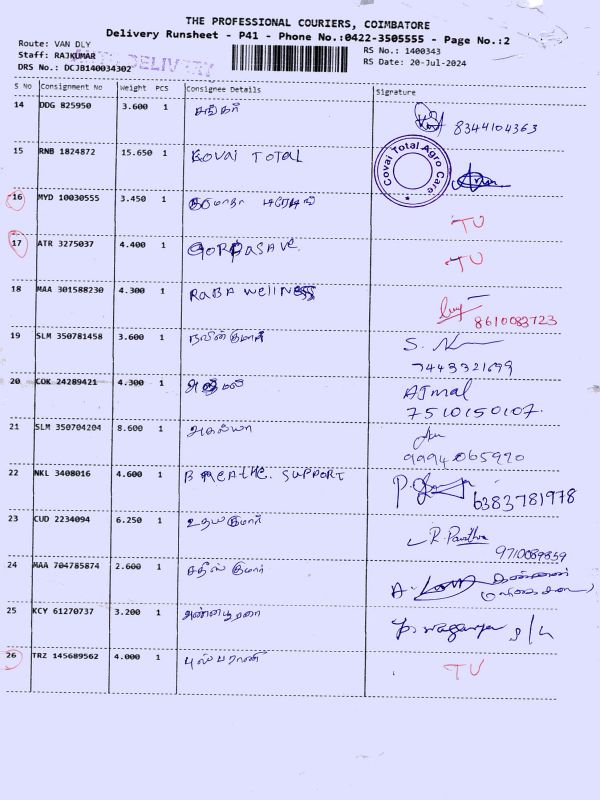 THE PROFESSIONAL COURIERS, COIMBATORE
Delivery Runsheet - P41 - Phone No.:0422-3505555 - Page No.:2
Route: VAN DLY
Staff: RAJKUMAR
DRS No.: DCJB140034302
DELIVERY
RS No.: 1400343
RS Date: 20-Jul-2024
S No Consignment No Weight PCS Consignee Details Signature
14 DDG 825950 3.600 1 சங்கர் 8344104363
15 RNB 1824872 15.650 1 KOVAI TOTAL
Covai Total Agro Care
16 MYD 10030555 3.450 1 TU
17 ATR 3275037 4.400 1 TU
18 MAA 301588230 4.300 1 RABA WellNESS
8610083723
19 SLM 350781458 3.600 1 நவின்குமார் S.
7443321699
20 COK 24289421 4.300 1 அஜ்மல் AJmal
7510150107.
21 SLM 350704204 8.600 1 அகல்யா
9994065920
22 NKL 3408016 4.600 1 BREATHE. SUPPORT P. 6383781978
23 CUD 2234094 6.250 1 உதயகுமார் R. Pavithra
9710089859
24 MAA 704785874 2.600 1 சதீஸ்குமார் A. கண்ணன்
25 KCY 61270737 3.200 1 அன்னபூரனா
26 TRZ 145689562 4.000 1 புஸ்பராணி TU